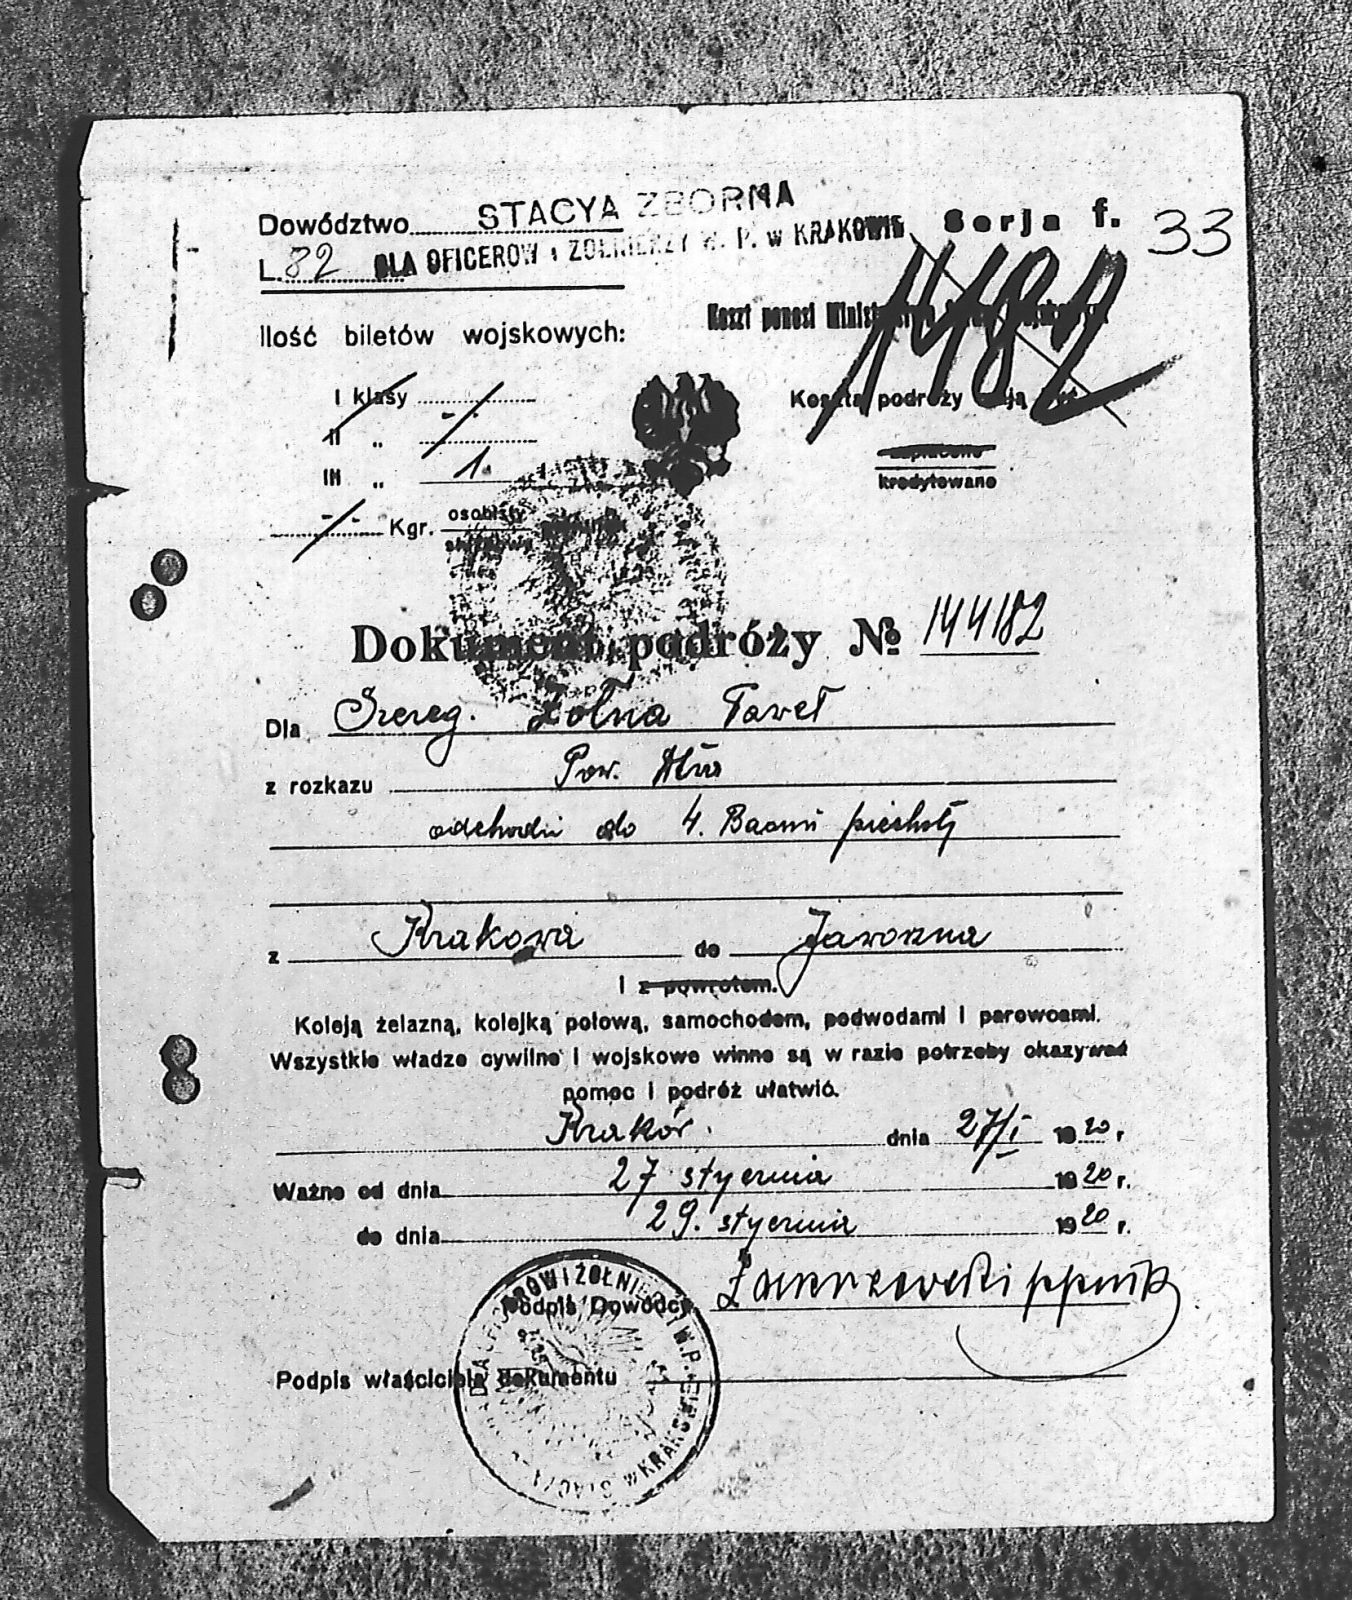 Dowództwo STACYA ZBORNA
Serja f. 33
L. 82 DLA OFICERÓW i ŻOŁNIERZY W. P. w KRAKOWIE
1182
Koszt ponosi
Ilość biletów wojskowych:
I klasy
Koszta podróży
II „
III „ 1.
zapłacono
kredytowano
Kgr. osobisty
Dokument podróży № 144182
Dla Szereg. Żołna Paweł
z rozkazu Pow.
odchodzi do 4. Baonu piechoty
z Krakowa do Jaworzna
i z powrotem.
Koleją żelazną, kolejką polową, samochodem, podwodami i parowcami.
Wszystkie władze cywilne i wojskowe winne są w razie potrzeby okazywać
pomoc i podróż ułatwić.
Kraków. dnia 27/I 1920 r
Ważne od dnia 27 stycznia 1920 r.
do dnia 29. stycznia 1920 r.
Podpis Dowódcy
Podpis właściciela dokumentu
DLA OFICERÓW I ŻOŁNIERZY W.P. w KRAKOWIE STACYA